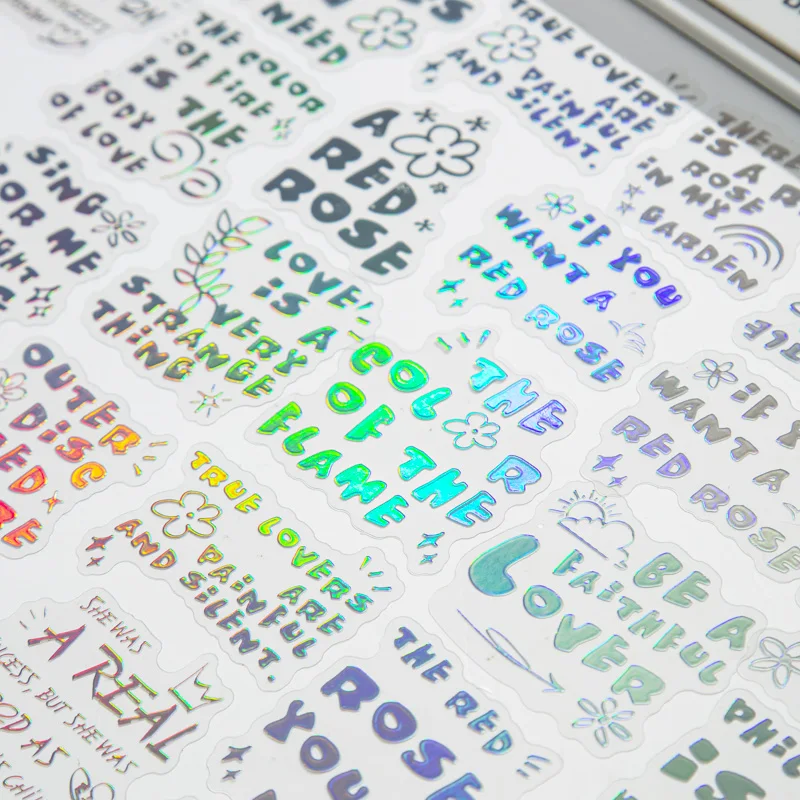 NEED
THE COLOR
OF FIRE
IS THE
BODY
OF LOVE
A
RED
ROSE
TRUE LOVERS
ARE
PAINFUL
AND SILENT.
THERE
IS A
ROSE
IN MY
GARDEN
SING
FOR ME
LOVE
IS A
VERY
STRANGE
THING
IF YOU
WANT A
RED ROSE
THE
COL R
OF THE
FLAME
IF
WANT A
RED ROSE
OUTER
DISC
TRUE LOVERS
ARE
PAINFUL
AND SILENT.
BE A
FAITHFUL
LOVER
SHE WAS
A REAL
BUT SHE WAS
AS
THE RED
ROSE
YOU
IS